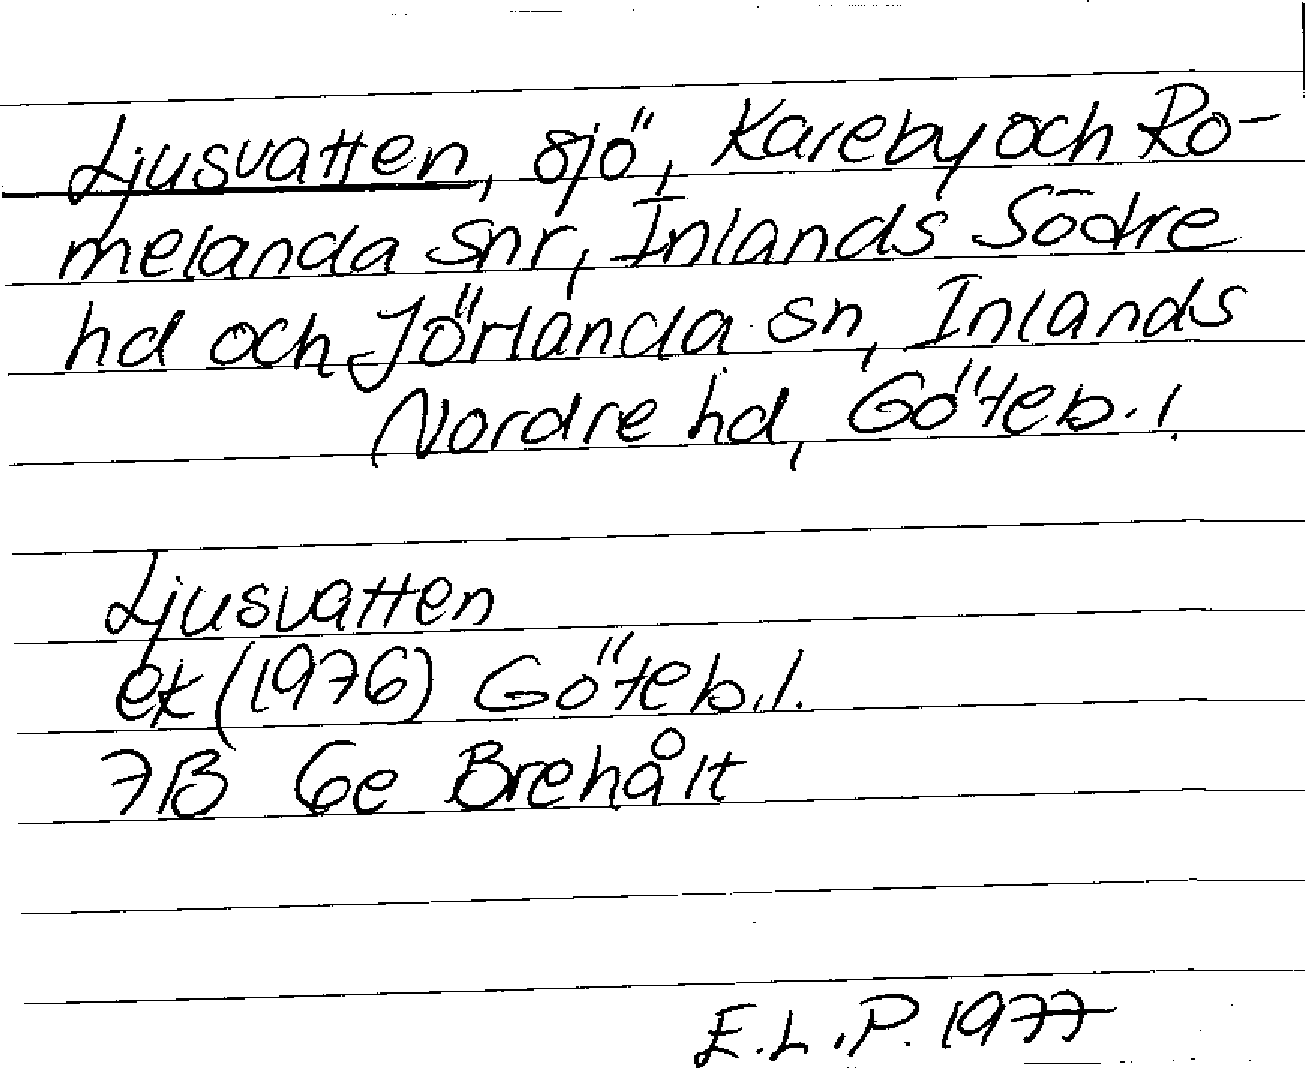 Ljusvatten, sjö, Kareby och Ro-
melanda snr, Inlands Södre
hd och Jörlanda sn, Inlands
Nordre hd, Göteb. l.
Ljusvatten
ek (1976) Göteb. l.
7B 6e Brehålt
E.L.P. 1977